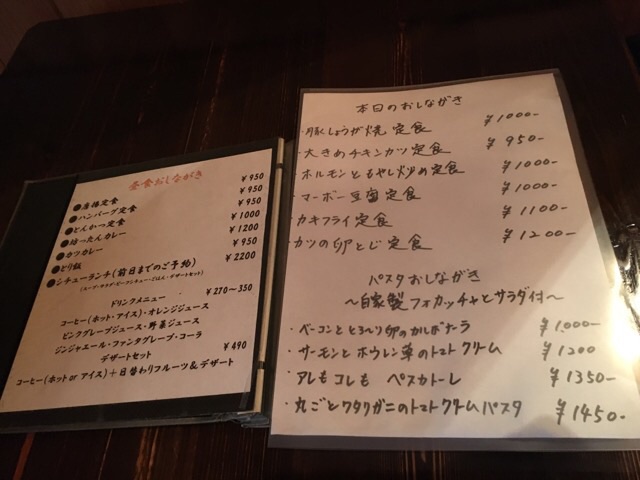 昼食おしながき
●唐揚定食 ¥950
●ハンバーグ定食 ¥950
●とんかつ定食 ¥950
●坊ったんカレー ¥1000
●カツカレー ¥1200
●とり飯 ¥950
●シチューランチ(前日までのご予約) ¥2200
(スープ・サラダ・ビーフシチュー・ごはん・デザートセット)
ドリンクメニュー ¥270～350
コーヒー(ホット・アイス)・オレンジジュース
ピンクグレープジュース・野菜ジュース
ジンジャエール・ファンタグレープ・コーラ
デザートセット ¥490
コーヒー(ホット or アイス)+日替わりフルーツ&デザート
本日のおしながき
・豚しょうが焼定食 ¥1000-
・大きめチキンカツ定食 ¥950-
・ホルモンともやし炒め定食 ¥1000-
・マーボー豆腐定食 ¥1000-
・カキフライ定食 ¥1100-
・カツの卵とじ定食 ¥1200-
パスタおしながき
～自家製フォカッチャとサラダ付～
・ベーコンととろ～り卵のカルボナーラ ¥1000-
・サーモンとホウレン草のトマトクリーム ¥1200
・アレもコレも ペスカトーレ ¥1350-
・丸ごとワタリガニのトマトクリームパスタ ¥1450-